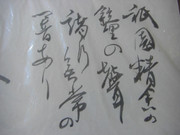 祇園精舎の
鐘の聲
諸行無常の
響あり